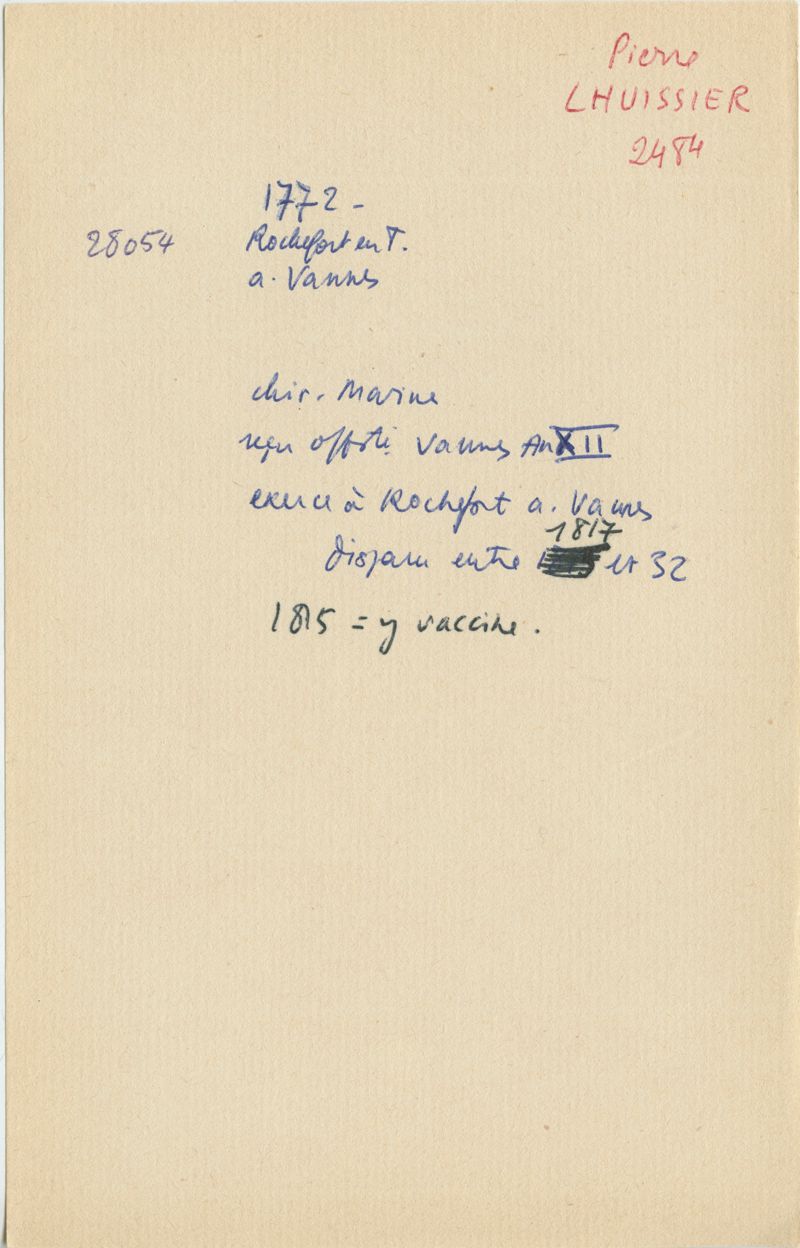 Pierre
LHUISSIER
2484
1772 -
28054 Rochefort en T.
a. Vannes
chir. Marine
reçu off. Vannes An XII
exerce à Rochefort a. Vannes
1817
disparu entre et 32
1815 = y vaccine.